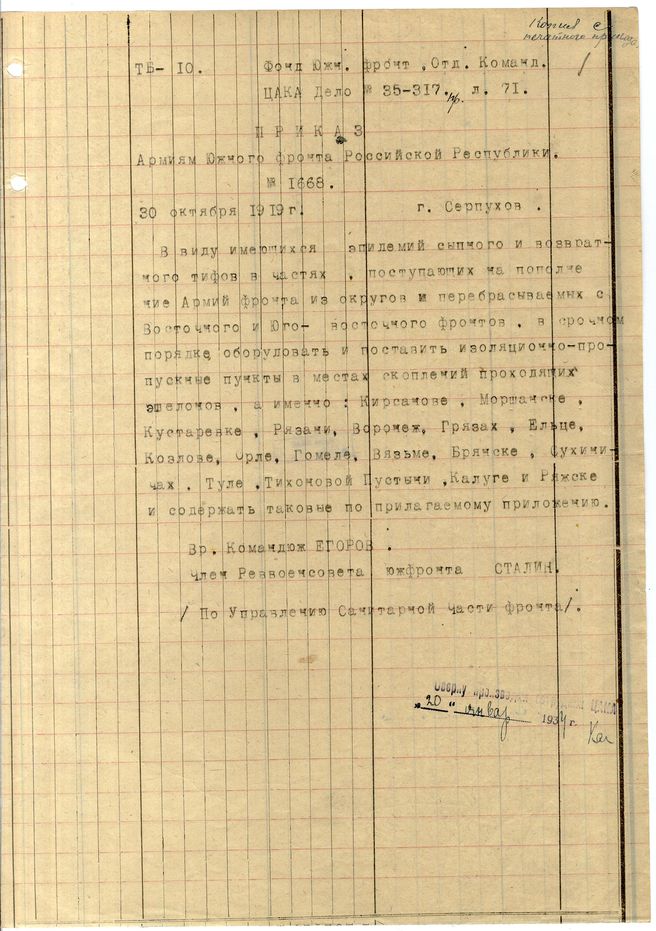 Копия с
печатного приказа.
ТБ- 10. Фонд Южн. фронт , Отд. Команд.
ЦАКА Дело № 35-317. л. 71.
П Р И К А З
Армиям Южного фронта Российской Республики.
№ 1668.
30 октября 1919г. г. Серпухов .
В виду имеющихся эпидемий сыпного и возврат-
ного тифов в частях , поступающих на пополне
ние Армий фронта из округов и перебрасываемых с
Восточного и Юго- восточного фронтов , в срочном
порядке оборудовать и поставить изоляционно-про-
пускные пункты в местах скоплений проходящих
эшелонов , а именно : Кирсанове , Моршанске ,
Кустаревке , Рязани, Воронеж, Грязах , Ельце,
Козлове, Орле, Гомеле, Вязьме, Брянске , Сухини-
чах . Туле ,Тихоновой Пустыни ,Калуге и Ряжске
и содержать таковые по прилагаемому приложению.
Вр. Командюж ЕГОРОВ .
Член Реввоенсовета южфронта СТАЛИН.
/ По Управлению Санитарной части фронта/.
Сверку произвел
„20" январ 193 г.